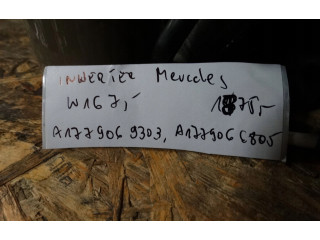 INWERTER Mercedes
W167,- 1875,-
A1779069303, A177906C805